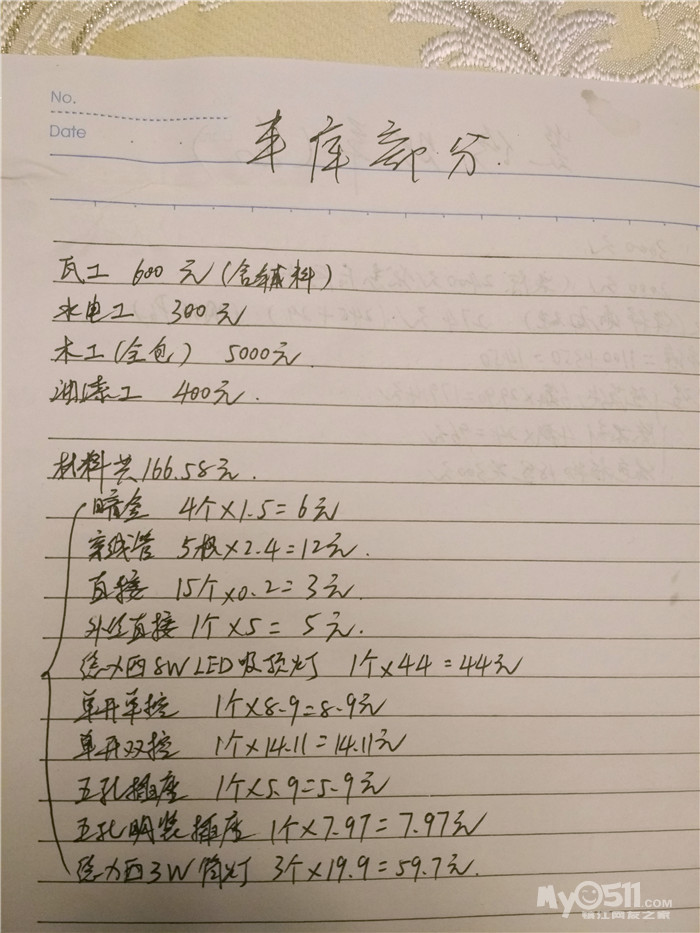 No.
Date
车库部分.
瓦工 600元(含辅料)
水电工 300元
木工(全包) 5000元
油漆工 400元.
材料共166.58元.
暗盒 4个×1.5=6元
穿线管 5根×2.4=12元.
直接 15个×0.2=3元.
外丝直接 1个×5=5元.
德力西8W LED吸顶灯 1个×44=44元
单开单控 1个×8.9=8.9元
单开双控 1个×14.11=14.11元
五孔插座 1个×5.9=5.9元
五孔明装插座 1个×7.97=7.97元
德力西3W筒灯 3个×19.9=59.7元.
My0511.com
镇江网友之家